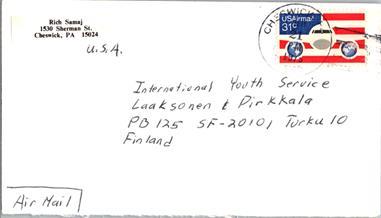 Rich Samaj
1530 Sherman St.
Cheswick, PA 15024
U.S.A.
CHESWICK
21
USAirmail
31c
International Youth Service
Laaksonen & Pirkkala
PB 125 SF-20101 Turku 10
Finland
Air Mail